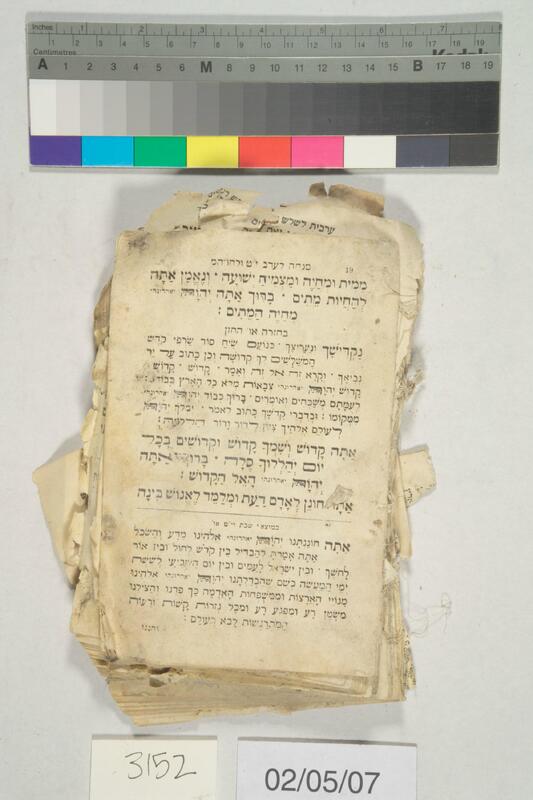 Inches
Centimetres
Kodak
A 1 2 3 4 5 6 M 8 9 10 11 12 13 14 15 B 17 18 19
ערבית לשלש
מנחה לערב י״ט ולחוה״מ 19
ממית ומחיה ומצמיח ישועה · ונאמן אתה
להחיות מתים · ברוך אתה יהוה
מחיה המתים :
בחזרה או׳ החזן
נקדישך ונעריצך כנועם שיח סוד שרפי קדש
המשלשים לך קדושה וכן כתוב על יד
נביאך · וקרא זה אל זה ואמר · קדוש · קדוש
קדוש יהוה צבאות מלא כל הארץ כבודו
לעמתם משבחים ואומרים · ברוך כבוד יהוה
ממקומו : ובדברי קדשך כתוב לאמר · ימלך יהוה
לעולם אלהיך ציון לדור ודור הללויה :
אתה קדוש ושמך קדוש וקדושים בכל
יום יהללוך סלה · ברוך אתה
יהוה האל הקדוש :
אתה חונן לאדם דעת ומלמד לאנוש בינה
במוצאי שבת וי״ט או׳
אתה חוננתנו יהוה אלהינו מדע והשכל
אתה אמרת להבדיל בין קדש לחול ובין אור
לחשך · ובין ישראל לעמים ובין יום השביעי לששת
ימי המעשה כשם שהבדלתנו יהוה אלהינו
מגויי הארצות וממשפחות האדמה כך פדנו והצילנו
משטן רע ומפגע רע ומכל גזרות קשות ורעות
המתרגשות לבא בעולם :
וחננו
3152
02/05/07